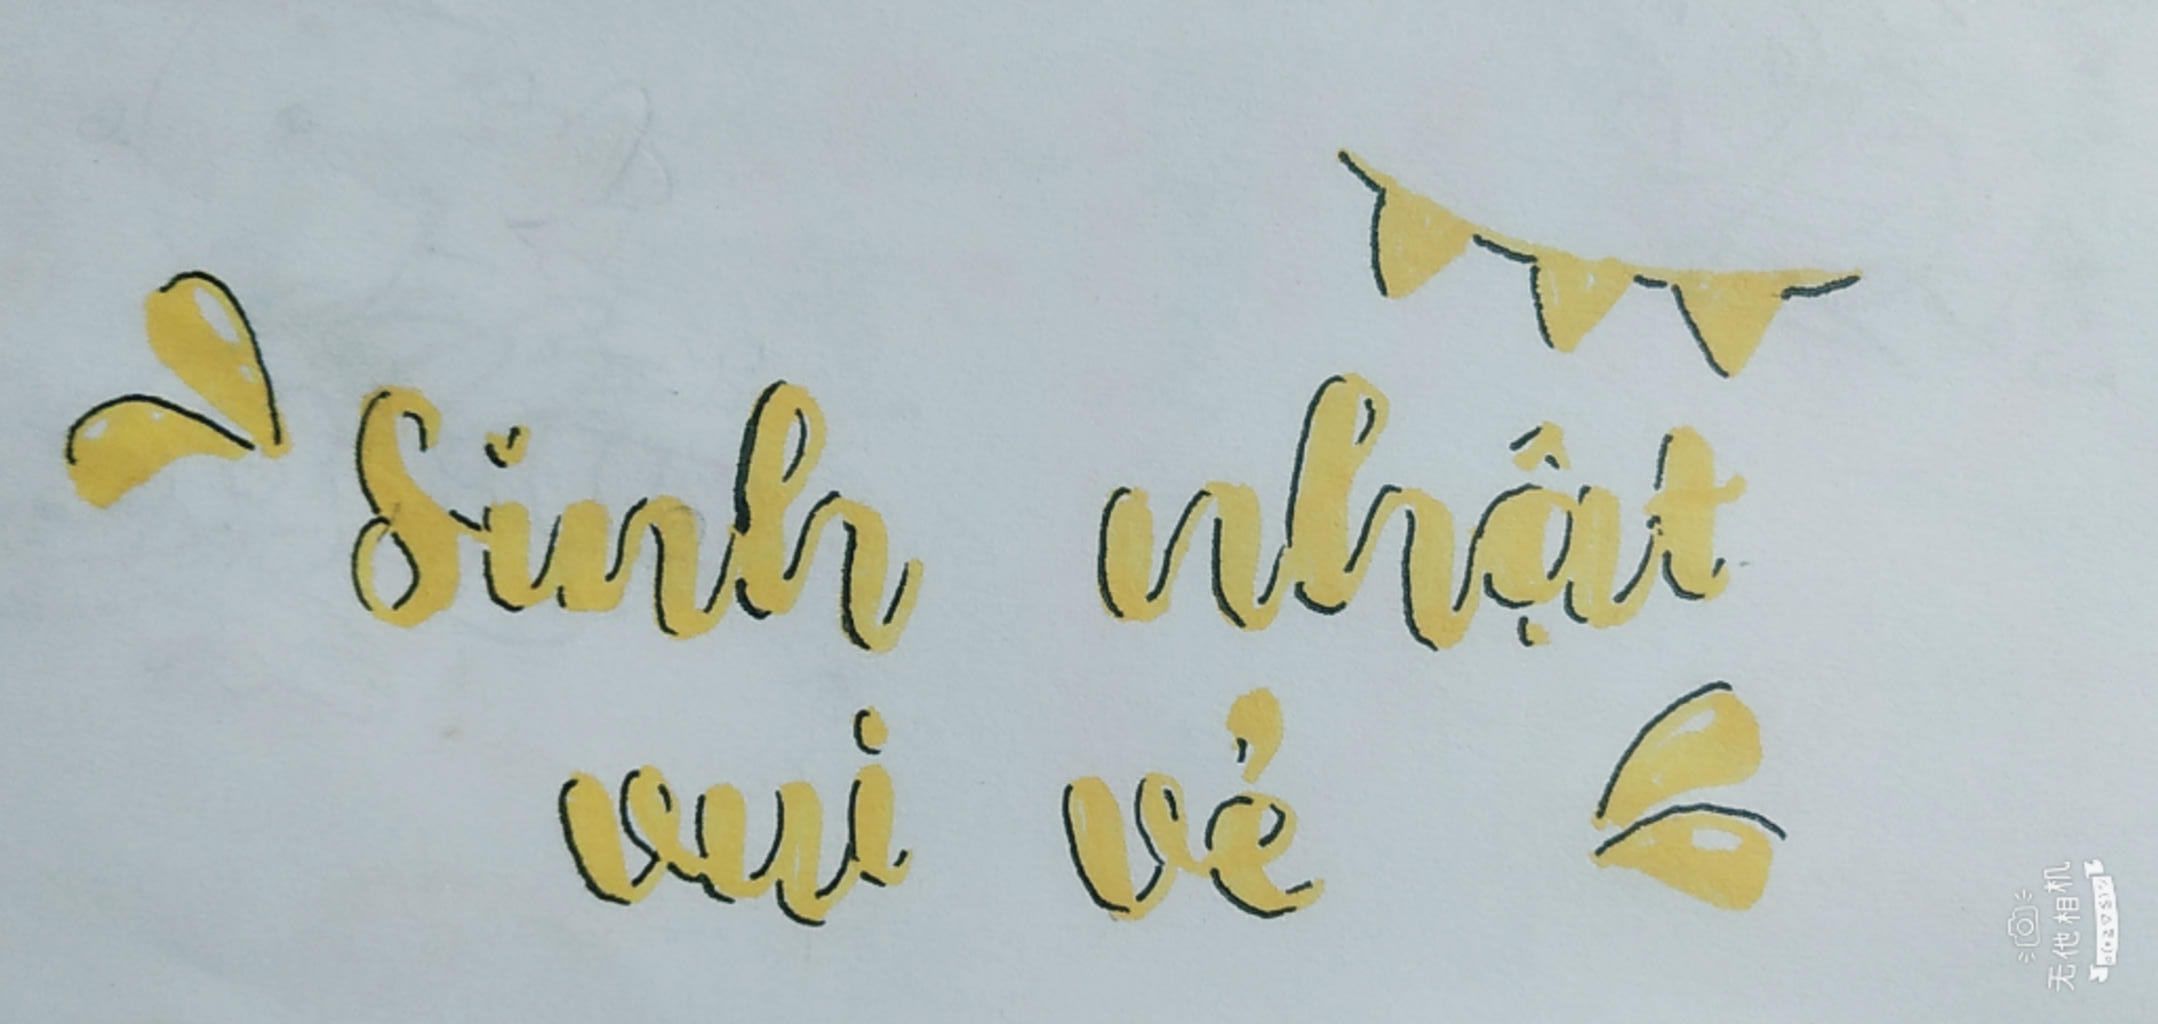 Sinh nhật
vui vẻ
无他相机